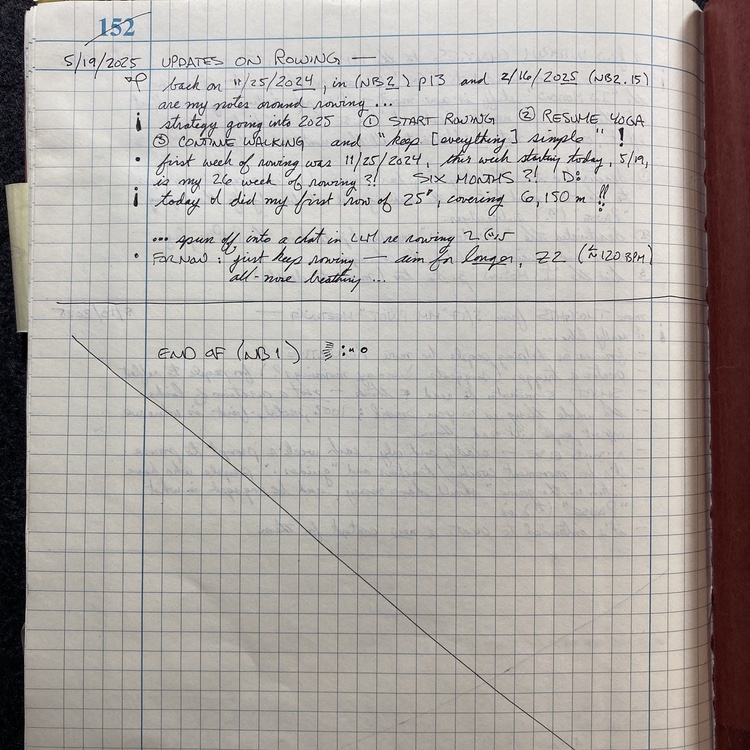 152
5/19/2025 UPDATES ON ROWING —
back on 11/25/2024, in (NB2) p13 and 2/16/2025 (NB2.15)
are my notes around rowing ...
strategy going into 2025 ① START ROWING ② RESUME YOGA
③ CONTINUE WALKING and "keep [everything] simple" !
• first week of rowing was 11/25/2024, this week starting today, 5/19,
is my 26 week of rowing ?! SIX MONTHS ?! D:
¡ today I did my first row of 25', covering 6,150 m !!
... spun off into a chat in LLM re rowing
• FOR NOW : just keep rowing — aim for longer, Z2 (≈120 BPM)
all-nose breathing ...
END OF (NB1)